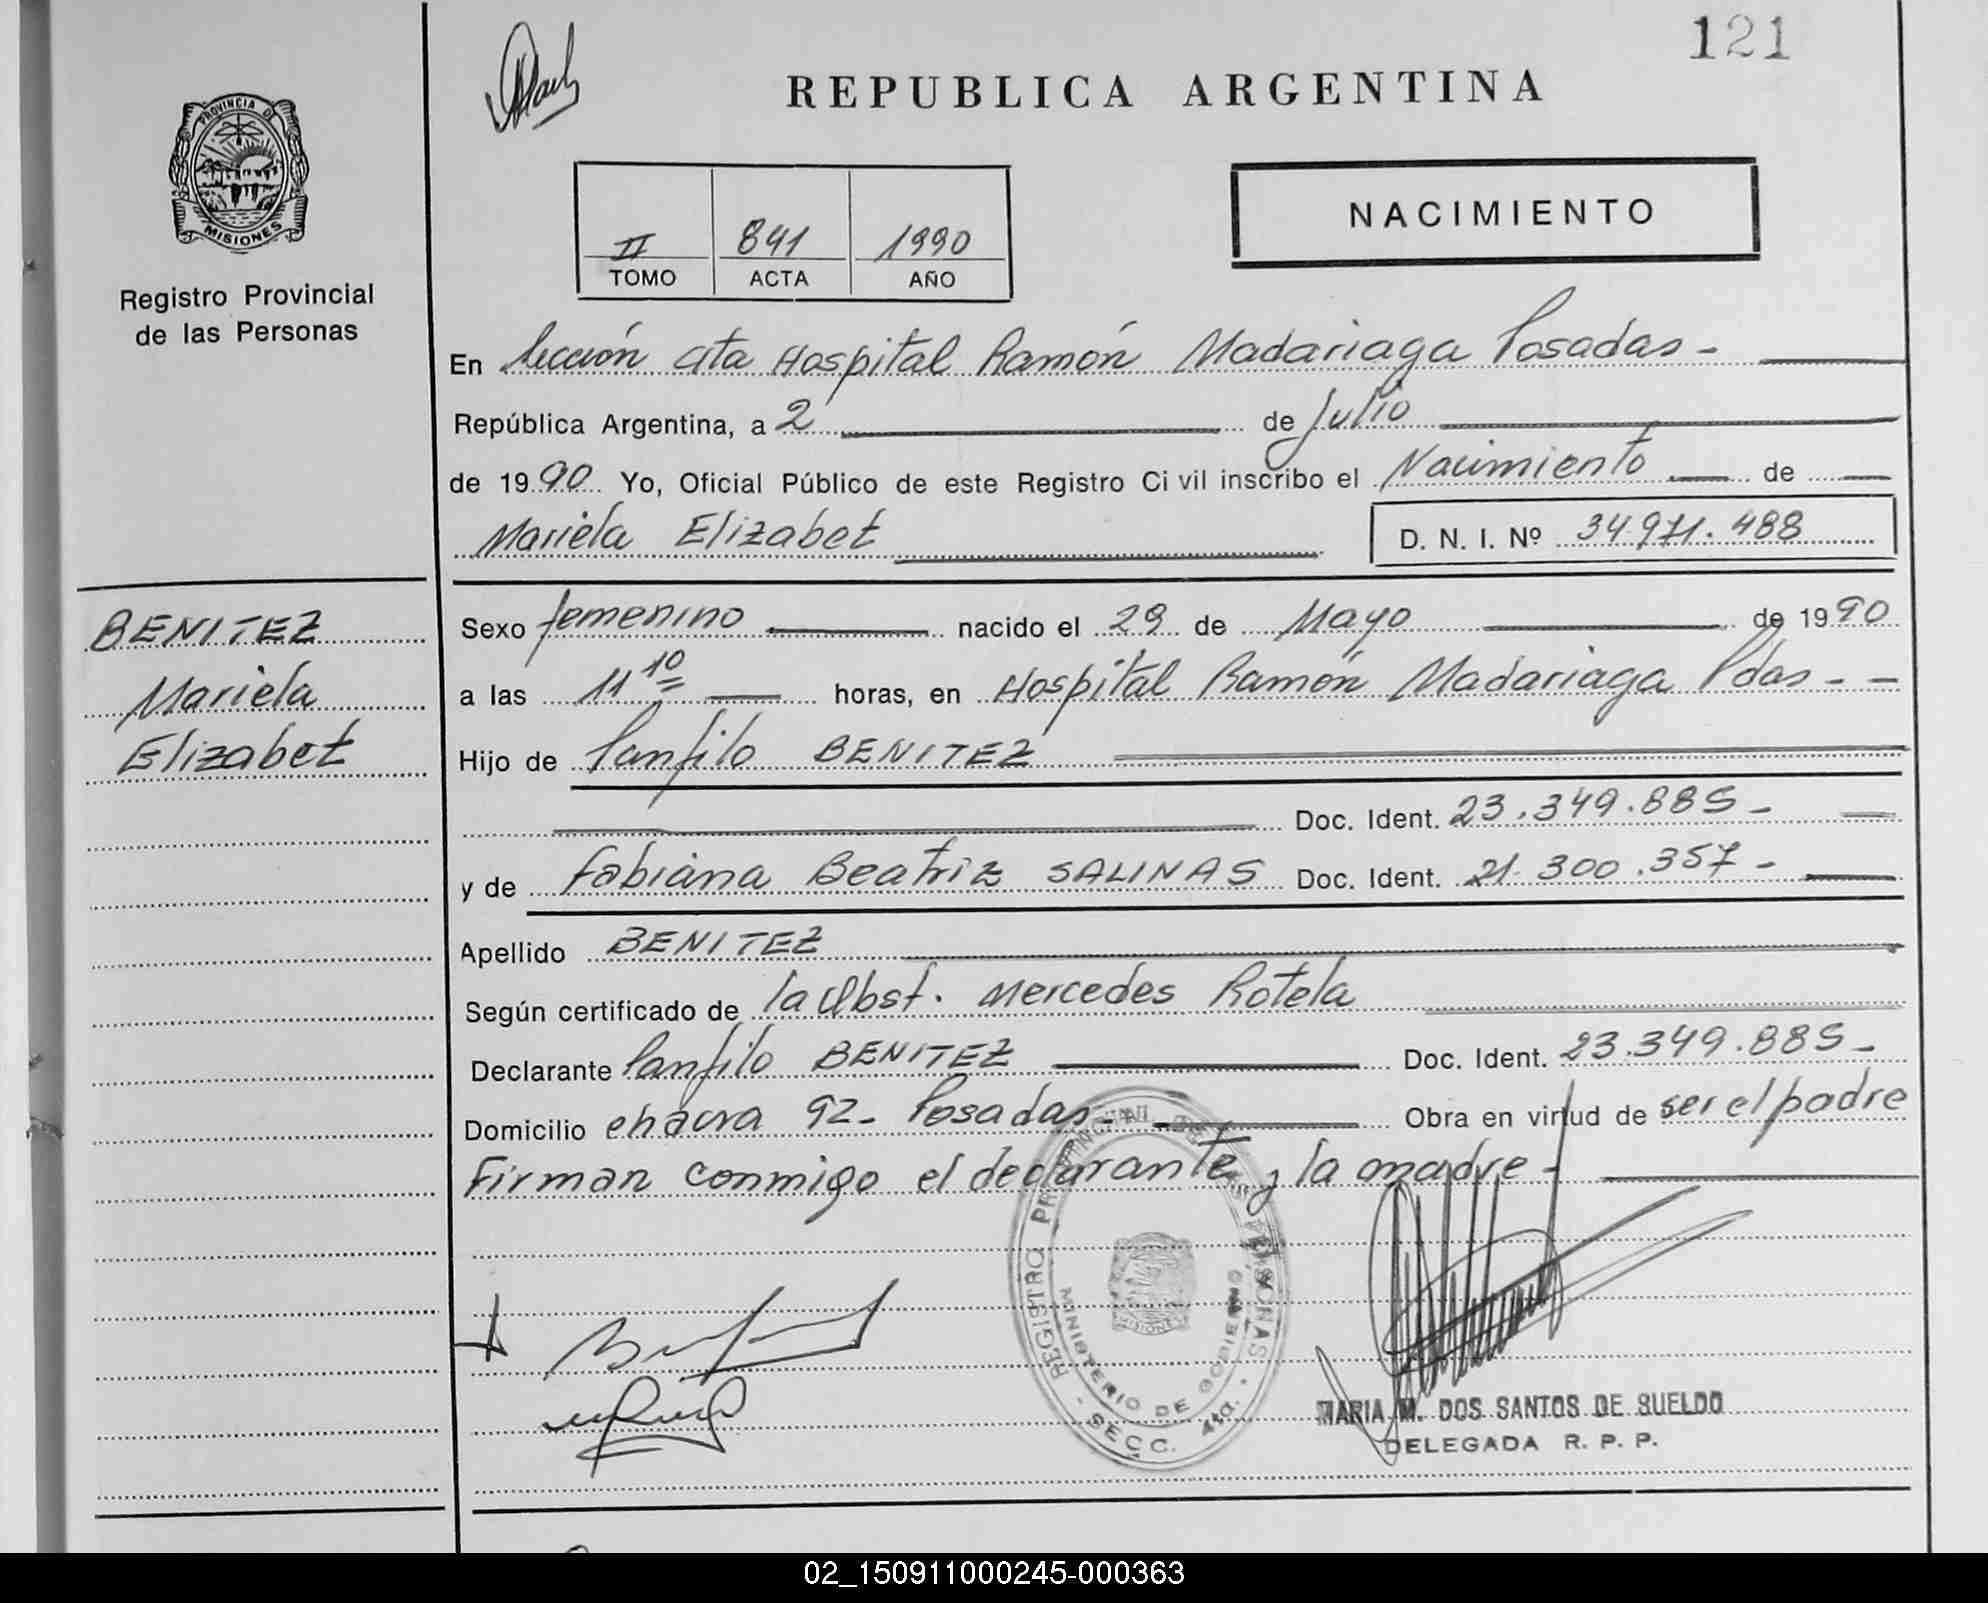 121
REPUBLICA ARGENTINA
PROVINCIA DE
MISIONES
Registro Provincial
de las Personas
II 841 1990
TOMO ACTA AÑO
NACIMIENTO
En Sección 4ta Hospital Ramón Madariaga Posadas -
República Argentina, a 2 de Julio
de 1990 Yo, Oficial Público de este Registro Civil inscribo el Nacimiento de
Mariela Elizabet D. N. I. Nº 34.971.488
BENITEZ
Mariela
Elizabet
Sexo femenino nacido el 29 de Mayo de 1990
a las 11 10 horas, en Hospital Ramón Madariaga Pdas - -
Hijo de Panfilo BENITEZ
Doc. Ident. 23.349.885 -
y de Fabiana Beatriz SALINAS Doc. Ident. 21.300.357 -
Apellido BENITEZ
Según certificado de la Obst. Mercedes Rotela
Declarante Panfilo BENITEZ Doc. Ident. 23.349.885 -
Domicilio chacra 92 - Posadas - Obra en virtud de ser el padre
Firman conmigo el declarante y la madre -
REGISTRO PROVINCIAL DE LAS PERSONAS
MINISTERIO DE GOBIERNO
MISIONES
- SECC. 4ta. -
MARIA M. DOS SANTOS DE SUELDO
DELEGADA R. P. P.
02_150911000245-000363